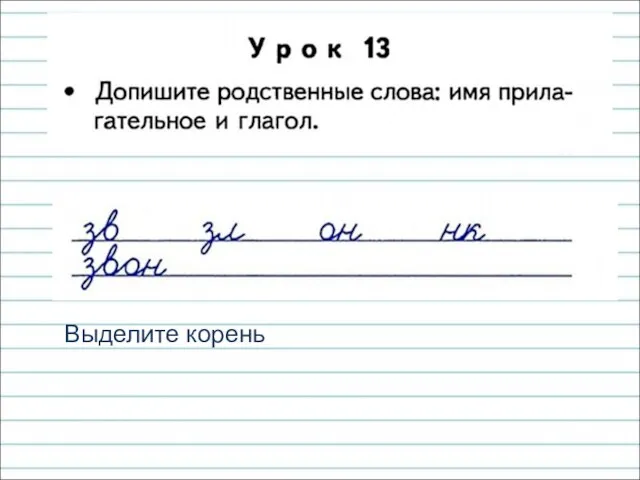 Урок 13
• Допишите родственные слова: имя прила-
гательное и глагол.
зв зл он нк
звон
Выделите корень